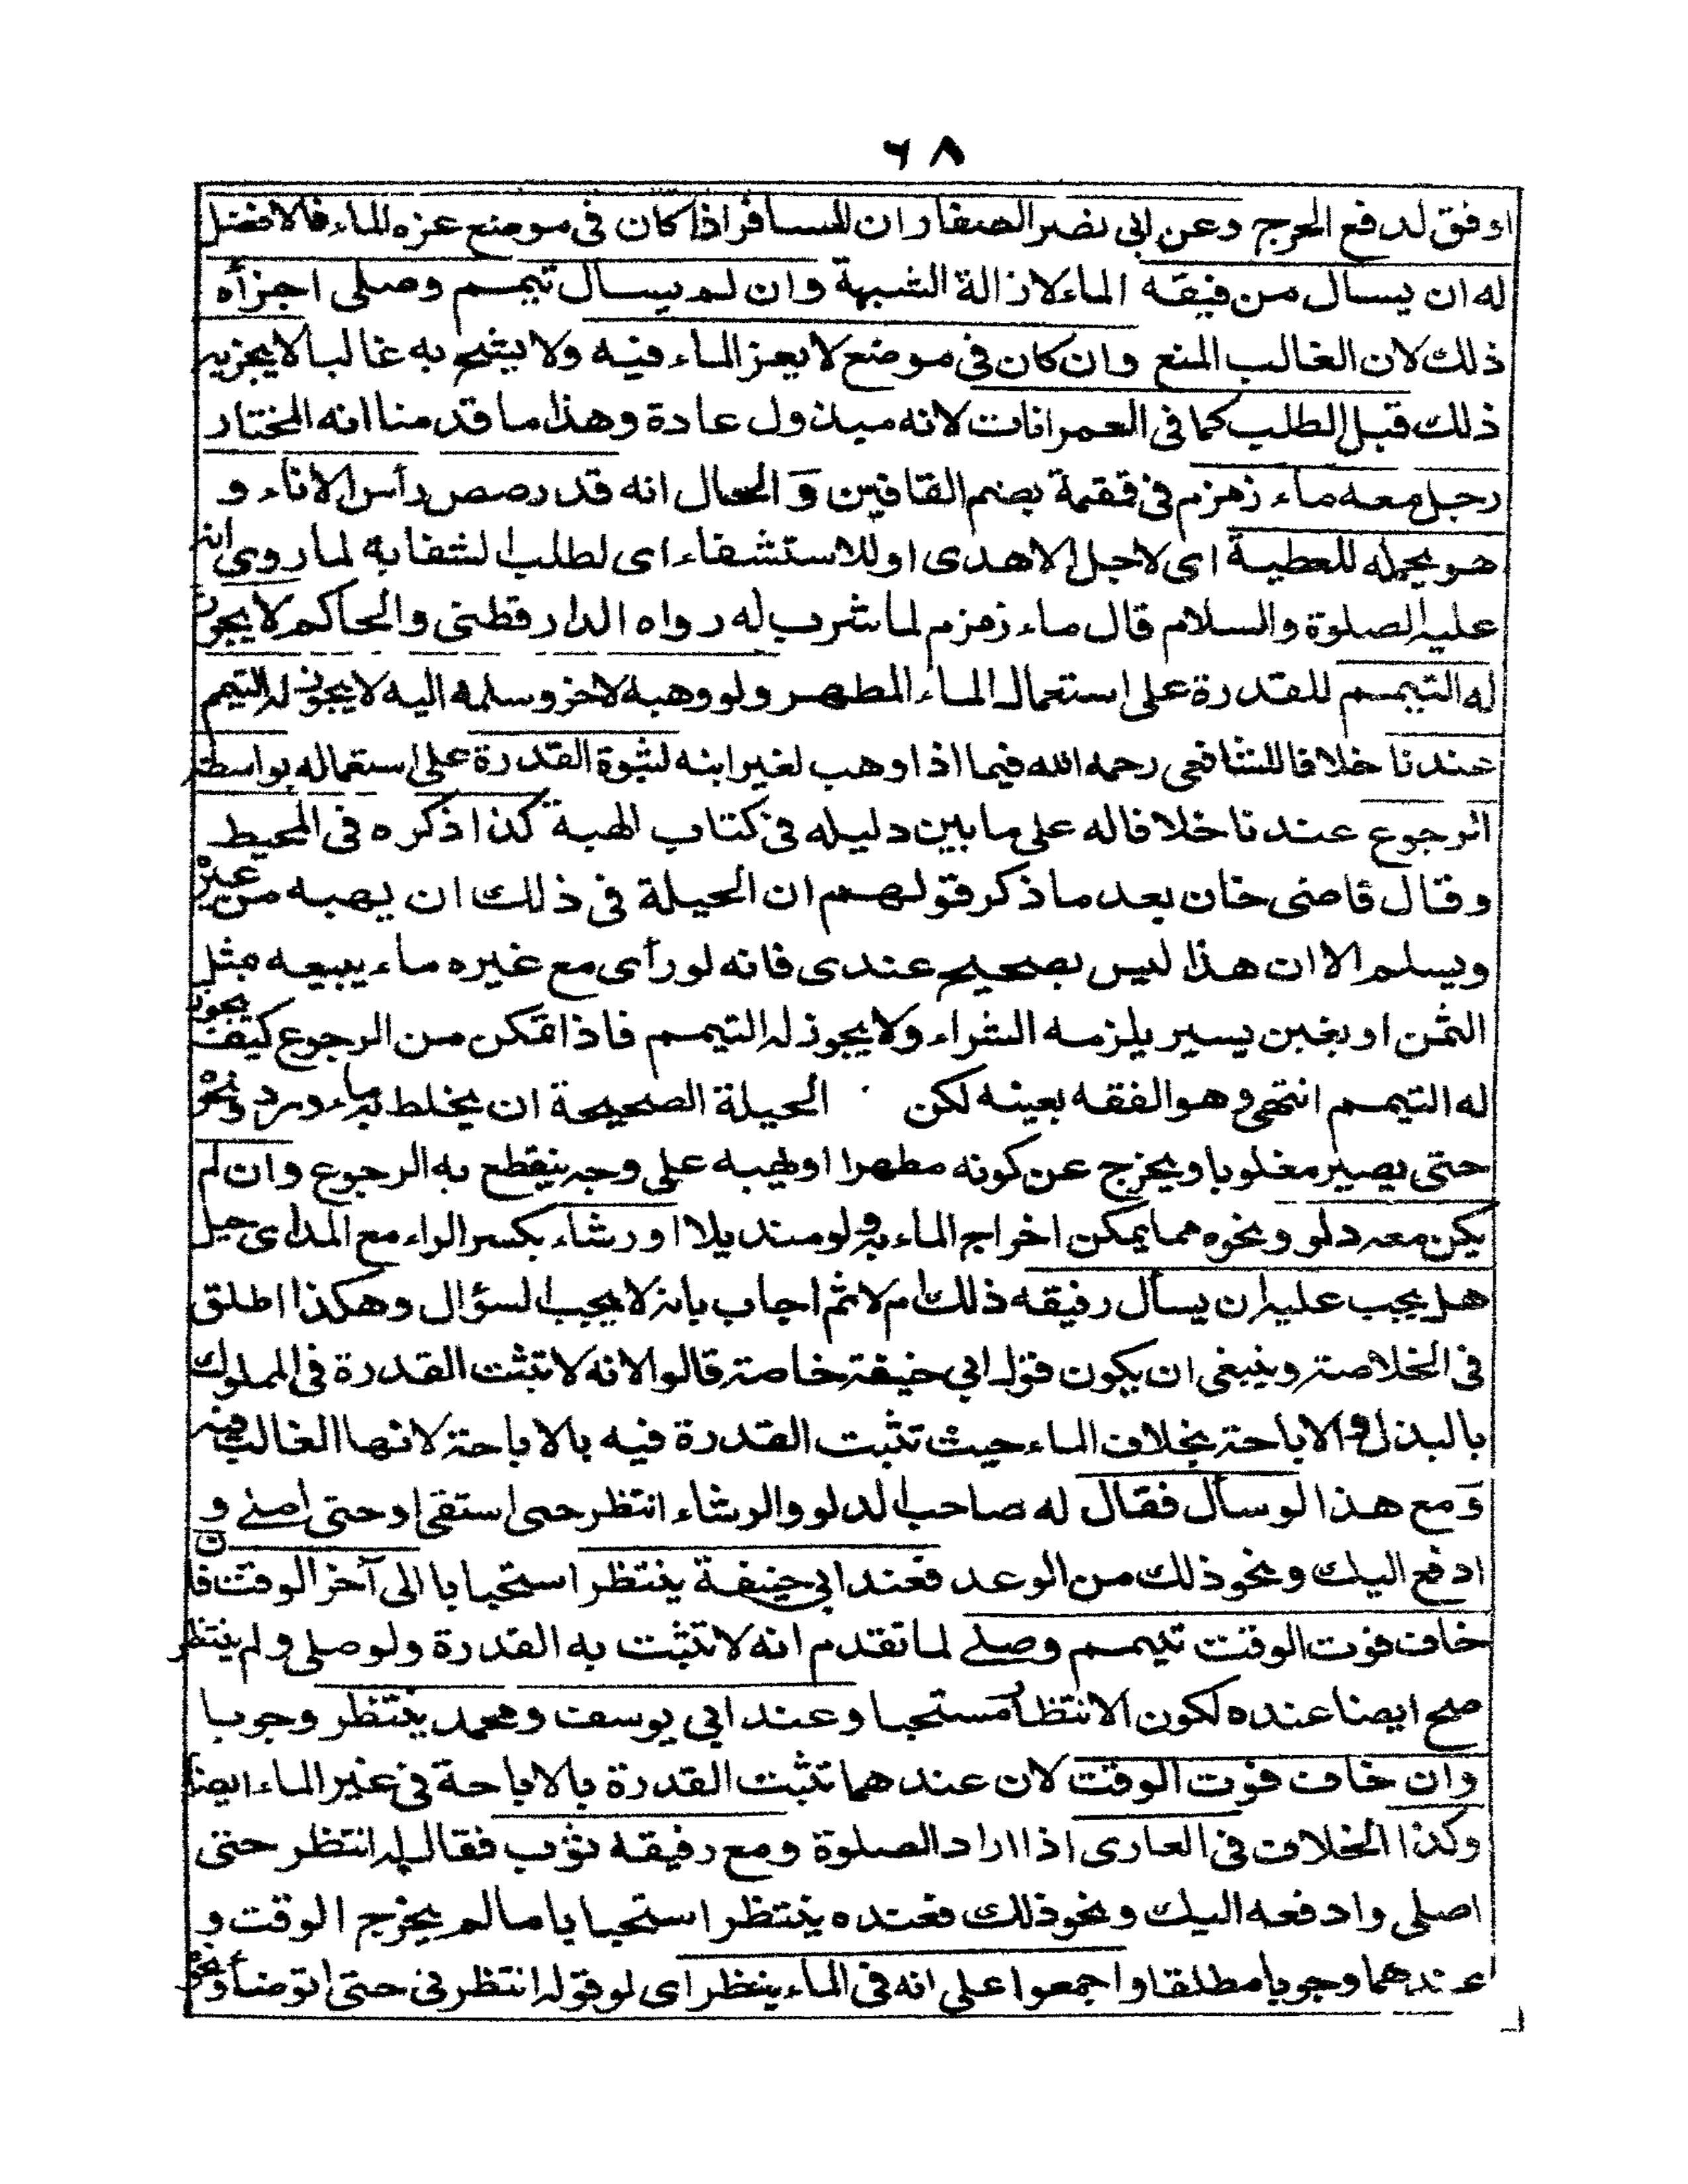 ٦٨
اوفق لدفع الحرج وعن ابى نصر الصفار ان المسافر اذا كان فى موضع عزه الماء فالافضل
له ان يسأل من فيقه الماء لازالة الشبهة وان لم يسأل تيمم وصلى اجزأه
ذلك لان الغالب المنع وان كان فى موضع لا يعز الماء فيه ولا يشح به غالبا لا يجزيه
ذلك قبل الطلب كما فى العمرانات لانه مبذول عادة وهذا ما قدمنا انه المختار
رجل معه ماء زمزم فى قمقمة بضم القافين وَ الحال انه قد رصص رأس الاناء و
هو يحمله للعطية اى لاجل الاهدى او للاستشفاء اى لطلب الشفا به لما روى انه
عليه الصلوة والسلام قال ماء زمزم لما شرب له رواه الدارقطنى والحاكم لا يجوز
له التيمم للقدرة على استعمال الماء المطهر ولو وهبه لاخر وسلمه اليه لا يجوز له التيم
عندنا خلافا للشافعى رحمه الله فيما اذا وهب لغير ابنه لثبوة القدرة على استعماله بواسطة
الرجوع عندنا خلافا له على ما بين دليله فى كتاب الهبة كذا ذكره فى المحيط
وقال قاضى خان بعد ما ذكر قولهم ان الحيلة فى ذلك ان يهبه من غيره
ويسلم الا ان هذا ليس بصحيح عندى فانه لو رأى مع غيره ماء يبيعه مثل
الثمن او بغبن يسير يلزمه الشراء ولا يجوز له التيمم فاذا تمكن من الرجوع كيف يجوز
له التيمم انتهى وهو الفقه بعينه لكن الحيلة الصحيحة ان يخلط به ماء ورد ونحوه
حتى يصير مغلوبا ويخرج عن كونه مطهرا او يهبه على وجه ينقطع به الرجوع وان لم
يكن معه دلو ونحوه مما يمكن اخراج الماء به ولو منديلا او رشاء بكسر الراء مع المد اى حبل
هل يجب عليه ان يسأل رفيقه ذلك ام لا ثم اجاب بانه لا يجب السؤال وهكذا اطلق
فى الخلاصة وينبغى ان يكون قول ابي حنيفة خاصة قالوا لانه لا تثبت القدرة فى المملوك
بالبذل و الاباحة بخلاف الماء حيث تثبت القدرة فيه بالاباحة لانها الغالب فيه
وَمع هذا لو سأل فقال له صاحب الدلو والرشاء انتظر حتى استقى او حتى اصلى و
ادفع اليك ونحو ذلك من الوعد فعند ابى حنيفة ينتظر استحبابا الى آخر الوقت فان
خاف فوت الوقت تيمم وصلى لما تقدم انه لا تثبت به القدرة ولو صلى ولم ينتظر
صح ايضا عنده لكون الانتظار مستحبا وعند ابى يوسف ومحمد ينتظر وجوبا
وان خاف فوت الوقت لان عندهما تثبت القدرة بالاباحة فى غير الماء ايضا
وكذا الخلاف فى العارى اذا اراد الصلوة ومع رفيقه ثوب فقال له انتظر حتى
اصلى وادفعه اليك ونحو ذلك فعنده ينتظر استحبابا ما لم يخرج الوقت و
عندهما وجوبا مطلقا واجمعوا على انه فى الماء ينتظر اى لو قوله انتظرنى حتى اتوضأ ونحو